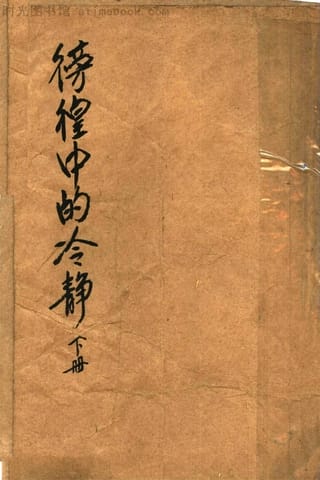 时光图书馆 atimebook.com
徬徨中的冷静
下册